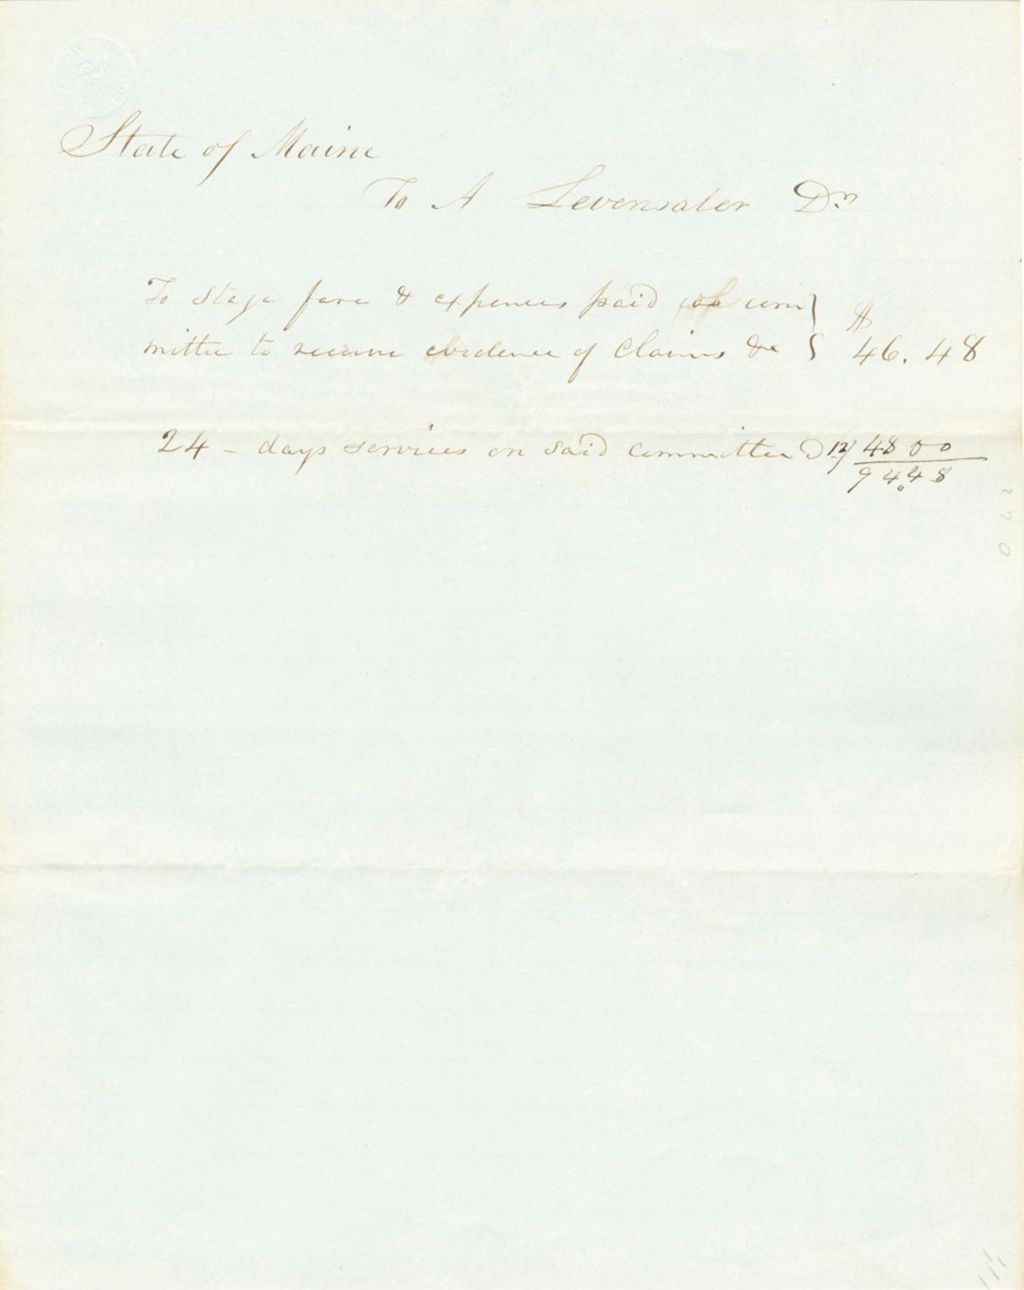 State of Maine
To A Levensaler Dr
To Stage fare & expences paid as com
mittee to receive evidence of Claims &c $ 46.48
24 - days services on said committee 12/ 48 00
94.48
220